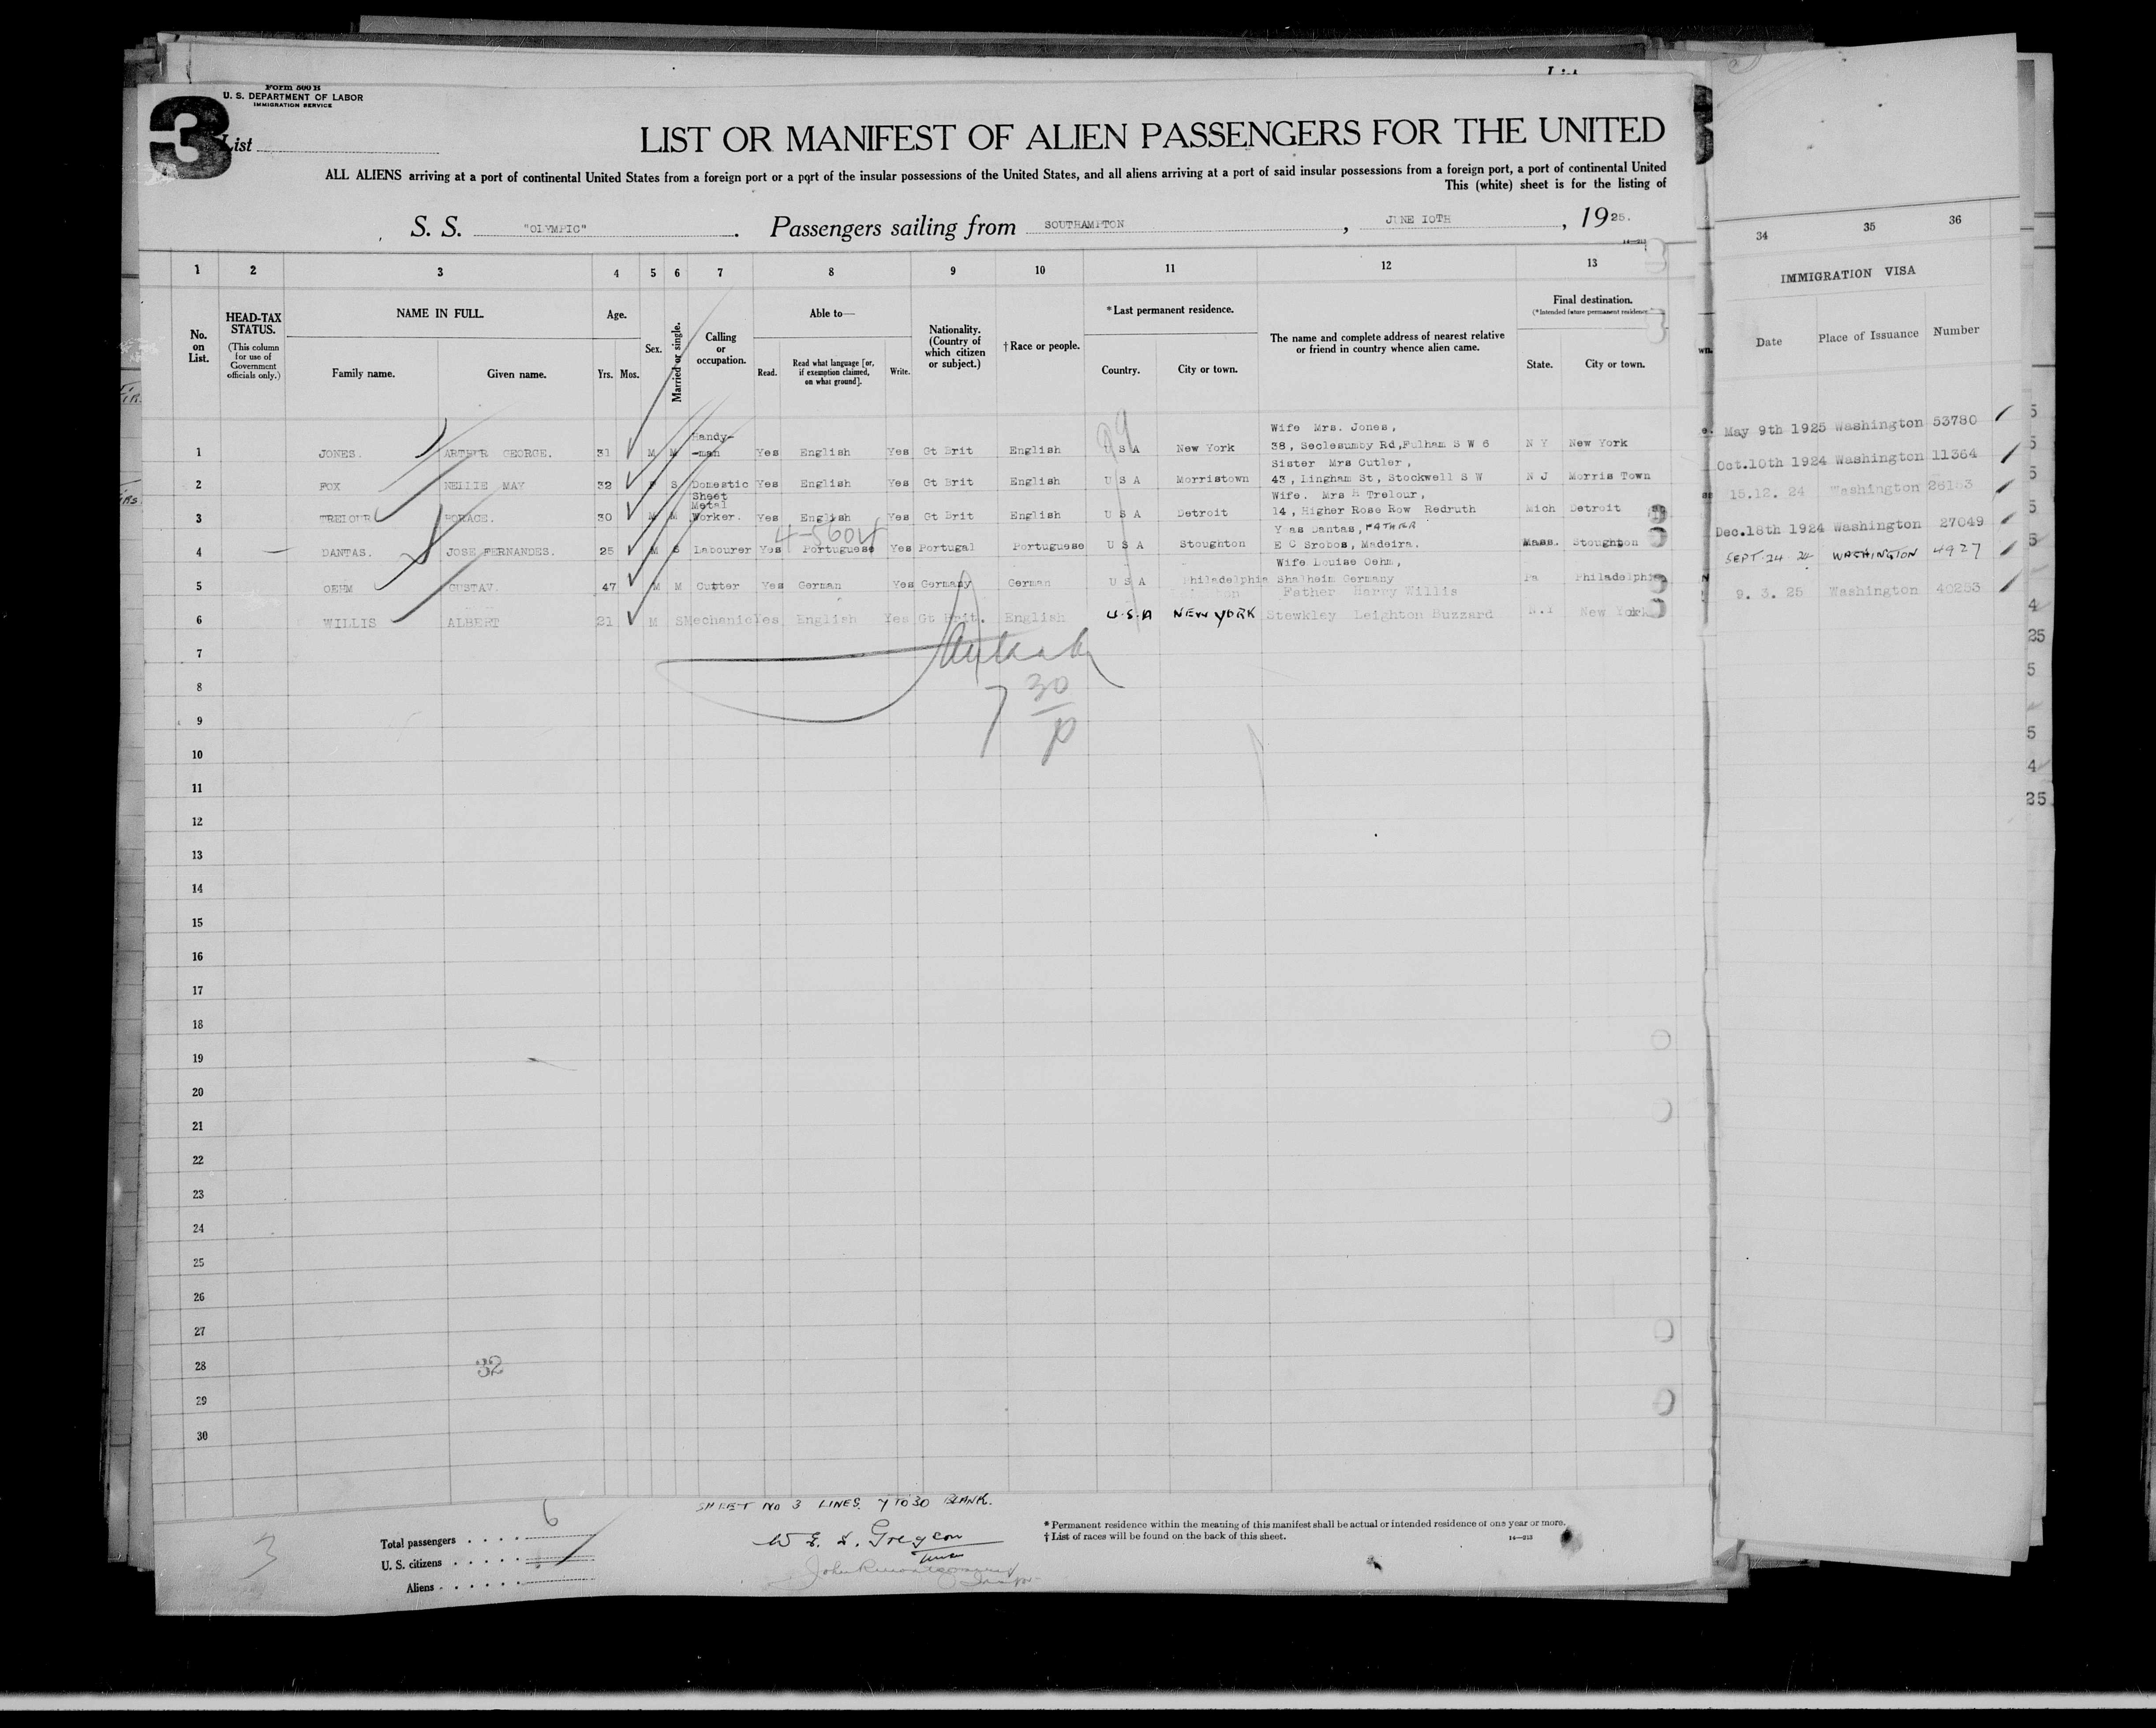 Form 500 B
U. S. DEPARTMENT OF LABOR
IMMIGRATION SERVICE
3
List
LIST OR MANIFEST OF ALIEN PASSENGERS FOR THE UNITED
ALL ALIENS arriving at a port of continental United States from a foreign port or a port of the insular possessions of the United States, and all aliens arriving at a port of said insular possessions from a foreign port, a port of continental United
This (white) sheet is for the listing of
S. S. "OLYMPIC". Passengers sailing from SOUTHAMPTON, JUNE 10TH, 1925.
1 2 3 4 5 6 7 8 9 10 11 12 13 34 35 36
No. on List.
HEAD-TAX STATUS.
(This column for use of Government officials only.)
NAME IN FULL.
Family name. Given name.
Age.
Yrs. Mos.
Sex.
Married or single.
Calling or occupation.
Able to—
Read. Read what language [or, if exemption claimed, on what ground]. Write.
Nationality. (Country of which citizen or subject.)
† Race or people.
* Last permanent residence.
Country. City or town.
The name and complete address of nearest relative or friend in country whence alien came.
Final destination.
(*Intended future permanent residence.)
State. City or town.
IMMIGRATION VISA
Date Place of Issuance Number
1 JONES. ARTHUR GEORGE. 31 M M Handy-man Yes English Yes Gt Brit English U S A New York Wife Mrs. Jones, 38, Seclesumby Rd, Fulham S W 6 N Y New York May 9th 1925 Washington 53780
2 FOX NELLIE MAY 32 F S Domestic Yes English Yes Gt Brit English U S A Morristown Sister Mrs Cutler, 43, Lingham St, Stockwell S W N J Morris Town Oct.10th 1924 Washington 11364
3 TRELOUR HORACE. 30 M M Sheet Metal Worker. Yes English Yes Gt Brit English U S A Detroit Wife. Mrs H Trelour, 14, Higher Rose Row Redruth Mich Detroit 15.12. 24 Washington 26183
4-5604
4 DANTAS. JOSE FERNANDES. 25 M S Labourer Yes Portuguese Yes Portugal Portuguese U S A Stoughton Dantas, FATHER E C Srobos, Madeira. Mass. Stoughton Dec.18th 1924 Washington 27049
5 OEHM GUSTAV. 47 M M Cutter Yes German Yes Germany German U S A Philadelphia Wife Louise Oehm, Shalheim Germany Pa Philadelphia SEPT. 24 24 WASHINGTON 4927
6 WILLIS ALBERT 21 M S Mechanic Yes English Yes Gt Brit. English U.S.A NEW YORK Father Harry Willis Stewkley Leighton Buzzard N.Y New York 9. 3. 25 Washington 40283
7
7 30
p
8
9
10
11
12
13
14
15
16
17
18
19
20
21
22
23
24
25
26
27
28
32
29
30
SHEET NO 3 LINES 7 TO 30 BLANK.
3
Total passengers 6
U. S. citizens
Aliens
* Permanent residence within the meaning of this manifest shall be actual or intended residence of one year or more.
† List of races will be found on the back of this sheet.
14—213